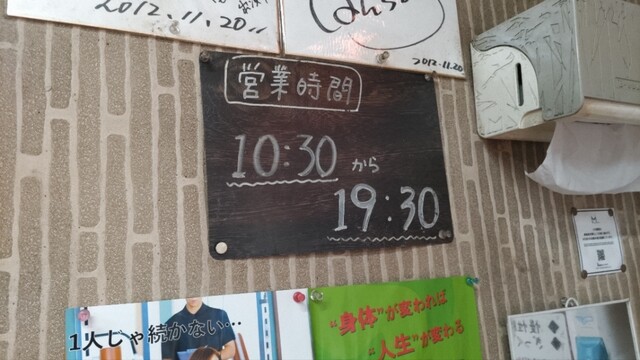 2012.11.20
2012.11.20
営業時間
10:30 から
19:30
1人じゃ続かない…
"身体"が変われば
"人生"が変わる